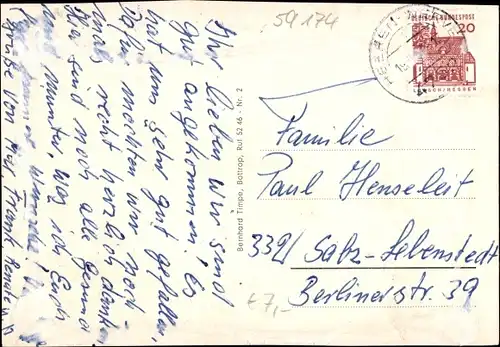 59 174
DEUTSCHE BUNDESPOST
20
Ihr lieben wir sind
gut angekommen, es
hat uns sehr gut gefallen,
Dafür möchten wir noch
mals recht herzlich danken
Wir sind noch alle Gesund
und munter, was ich Euch
auch immer wünsche.
Grüße von
Bernhard Timpe, Bottrop, Ruf 52 46 - Nr. 2
Familie
Paul Henseleit
3321 Salz-Lebenstedt
Berlinerstr. 39
€ 7,-